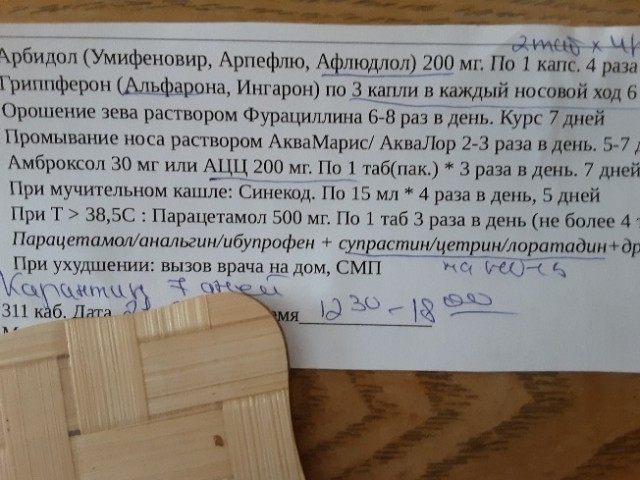 2таб х 4р
Арбидол (Умифеновир, Арпефлю, Афлюдлол) 200 мг. По 1 капс. 4 раза
Гриппферон (Альфарона, Ингарон) по 3 капли в каждый носовой ход 6
Орошение зева раствором Фурациллина 6-8 раз в день. Курс 7 дней
Промывание носа раствором АкваМарис/ АкваЛор 2-3 раза в день. 5-7 д
Амброксол 30 мг или АЦЦ 200 мг. По 1 таб(пак.) * 3 раза в день. 7 дней
При мучительном кашле: Синекод. По 15 мл * 4 раза в день, 5 дней
При Т > 38,5С : Парацетамол 500 мг. По 1 таб 3 раза в день (не более 4
Парацетамол/анальгин/ибупрофен + супрастин/цетрин/лоратадин+др
При ухудшении: вызов врача на дом, СМП на
Карантин 7 дней
311 каб. Дата мя 12 30 - 18 00